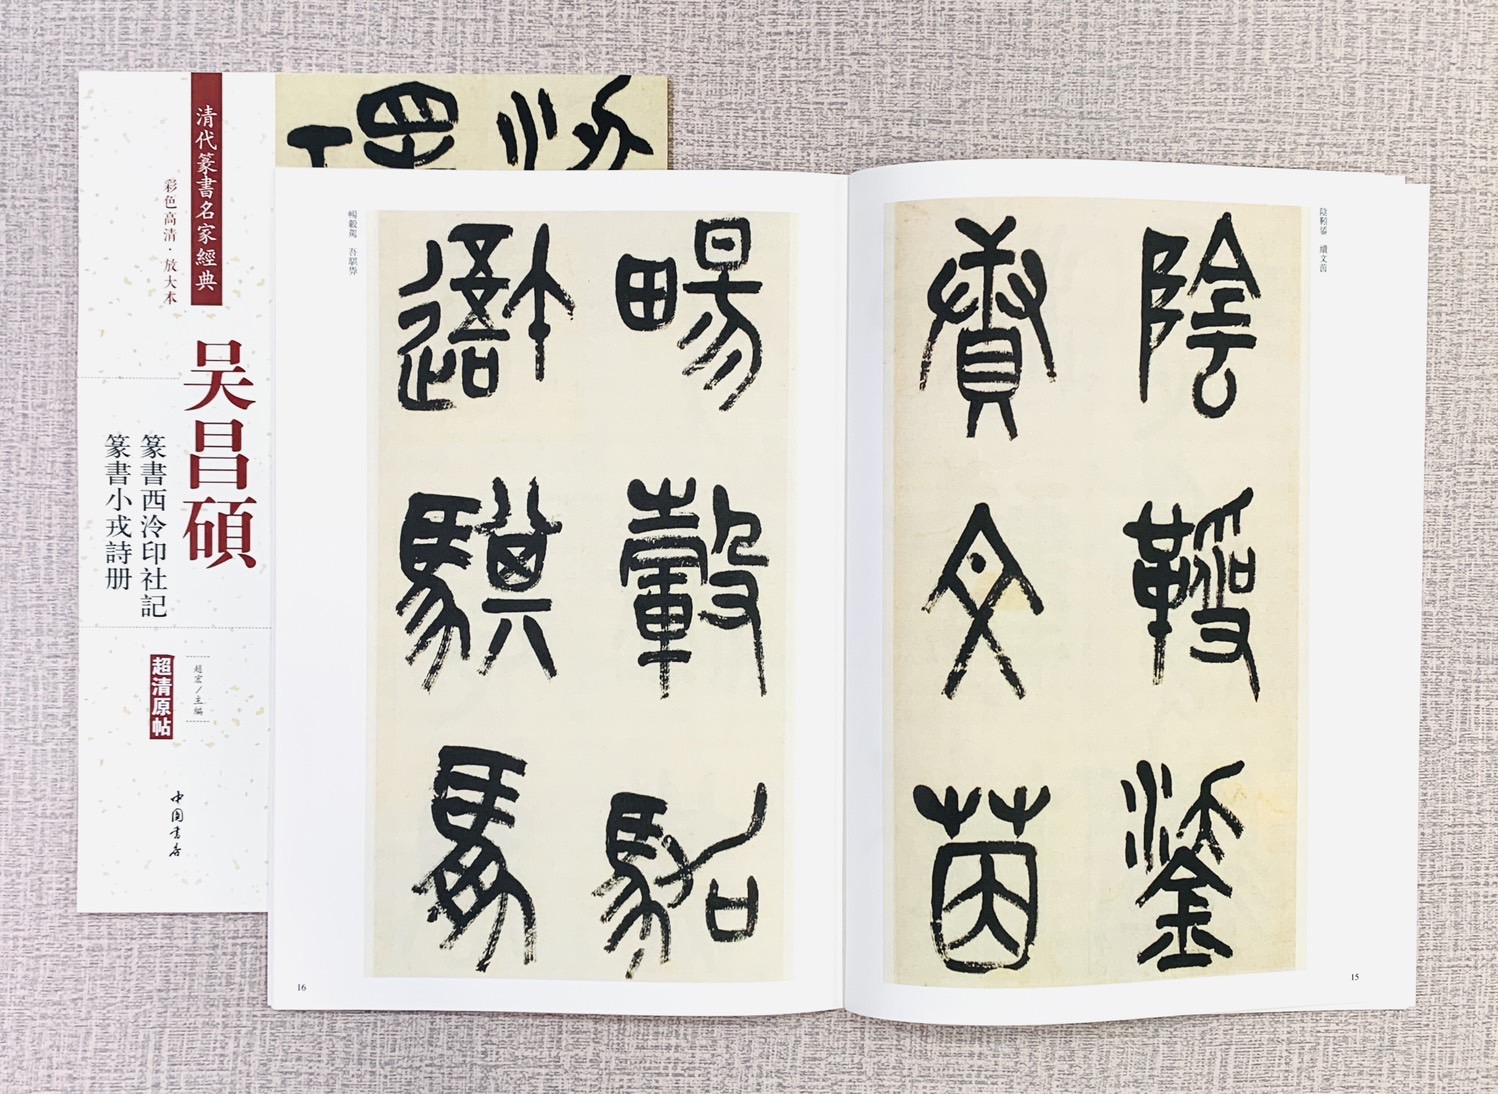 清代篆書名家經典
彩色高清·放大本
吴昌碩
篆書西泠印社記
篆書小戎詩册
趙宏/主編
超清原帖
中国書店
陰靷鋈 續文茵
陰靷鋈
續文茵
15
暢轂駕
吾騏馵
暢轂駕 吾騏馵
16